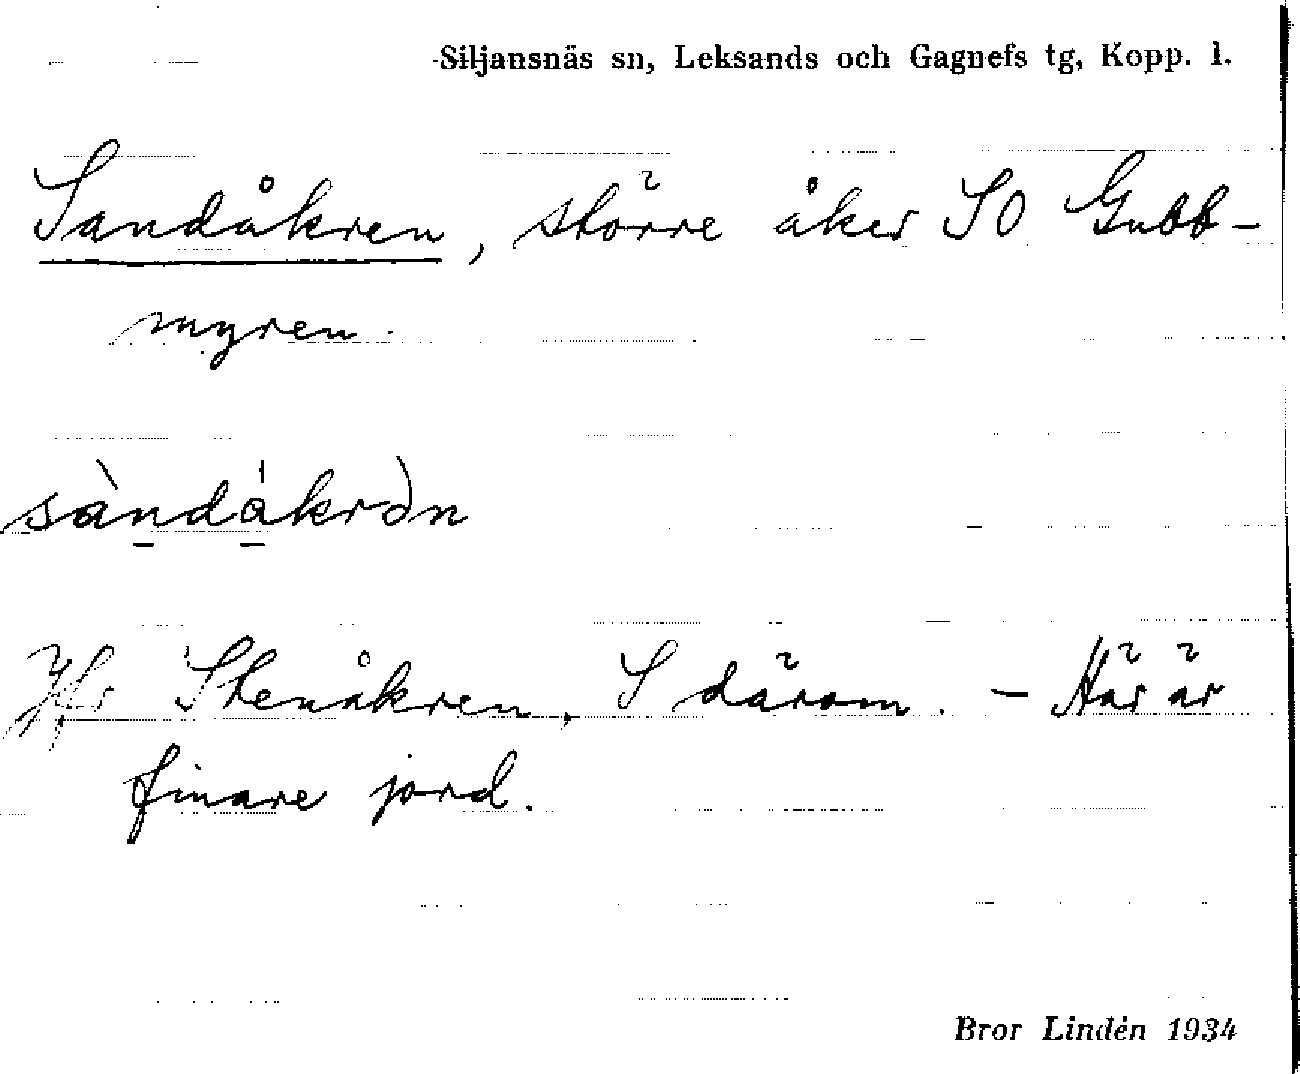 Siljansnäs sn, Leksands och Gagnefs tg, Kopp. l.
Sandåkren, större åker SO Gubb-
myren.
sàndákrən
Jfr Stenåkren, S därom. - Här är
finare jord.
Bror Lindén 1934